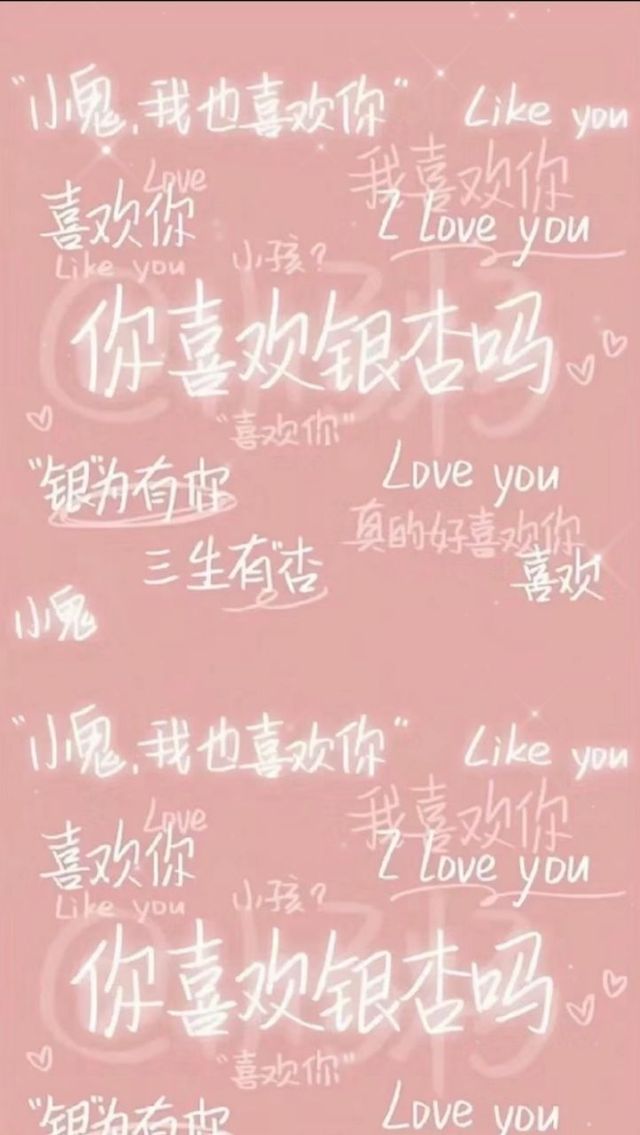 "小鬼,我也喜欢你" Like you
Love 我喜欢你
喜欢你 I Love you
Like you 小孩?
你喜欢银杏吗
"喜欢你"
"银"为有你 Love you
真的好喜欢你
三生有"杏 喜欢
小鬼
"小鬼,我也喜欢你" Like you
Love 我喜欢你
喜欢你 I Love you
Like you 小孩?
你喜欢银杏吗
"喜欢你"
"银"为有你 Love you